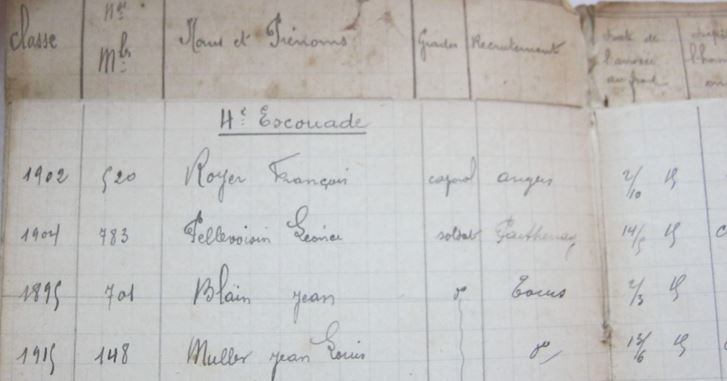 classe nos Mles Noms et Prénoms Grades Recrutement date de l'arrivée au front
4e Escouade
1902 520 Royer François caporal angers 2/10 15
1904 783 Pellevoisin Léonce soldat Parthenay 14/5 15
1895 701 Blain jean do Tours 2/3 15
1915 148 Muller jean Louis do 13/6 15